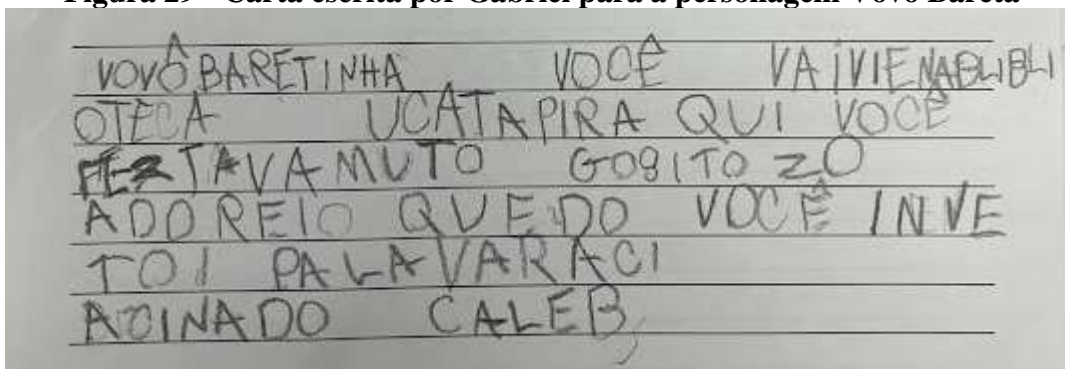 Figura 29 – Carta escrita por Gabriel para a personagem Vovó Bareta
VOVÔ BARETINHA VOCÊ VAIVIENABLIBLI
OTECA UCATAPIRA QUI VOCÊ
FEZ TAVAMUTO GOSITOZO
ADOREIO QUEDO VOCÊ INVE
TOI PALAVARACI
ACINADO CALEB